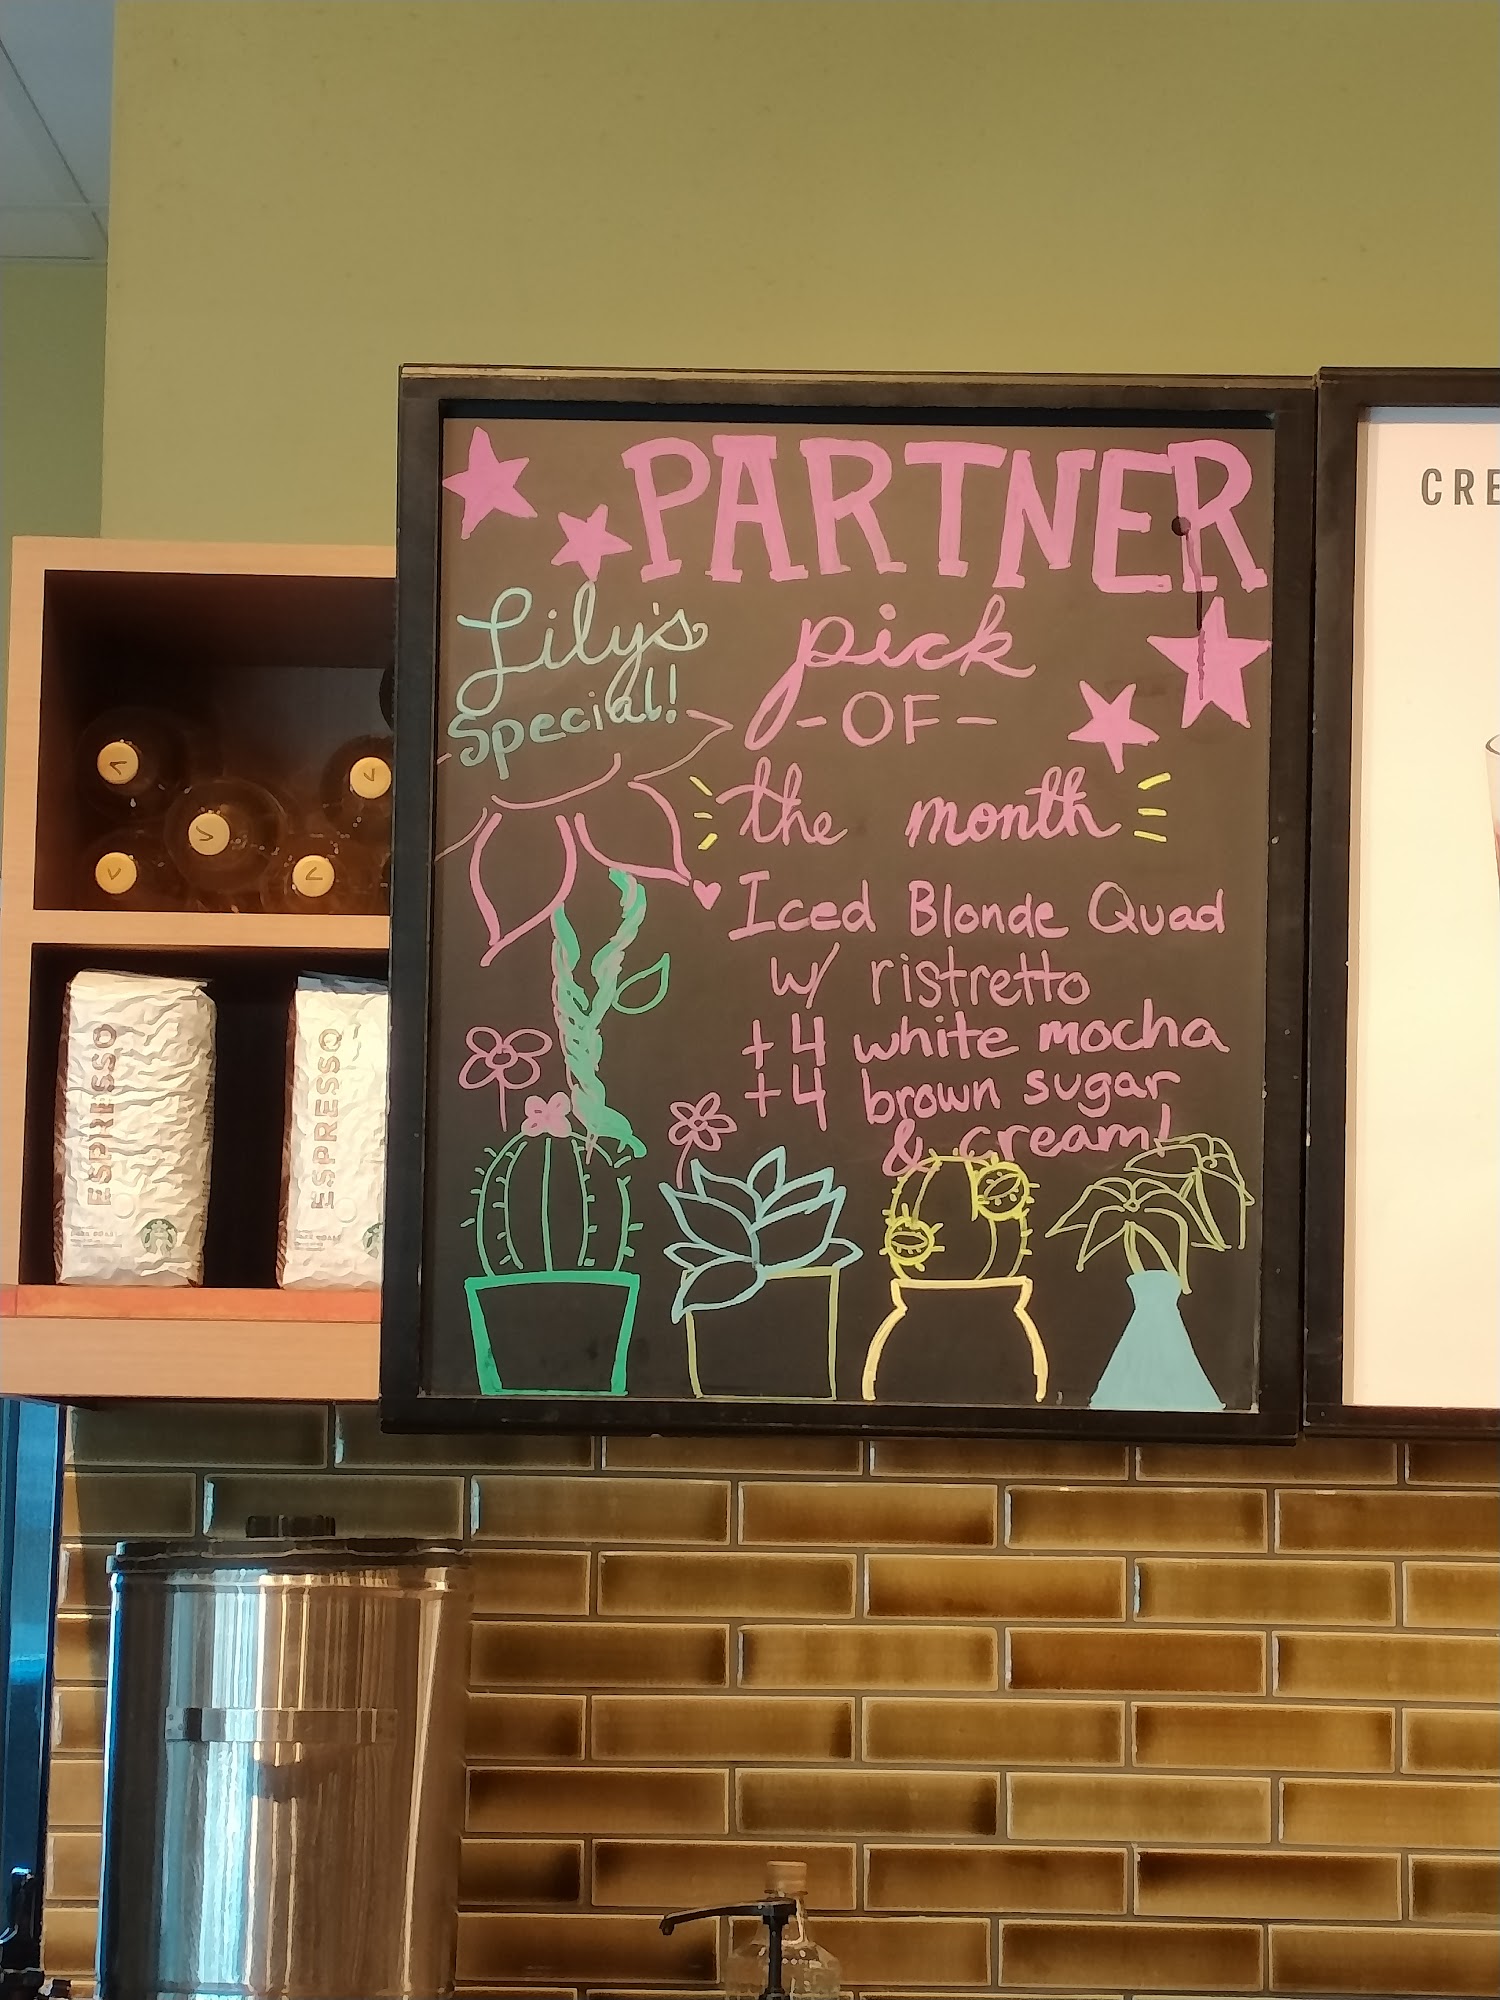 PARTNER
Lily's
Special!
pick
-OF-
the month
Iced Blonde Quad
w/ ristretto
+4 white mocha
+4 brown sugar
& cream!
ESPRESSO
ESPRESSO
CRE